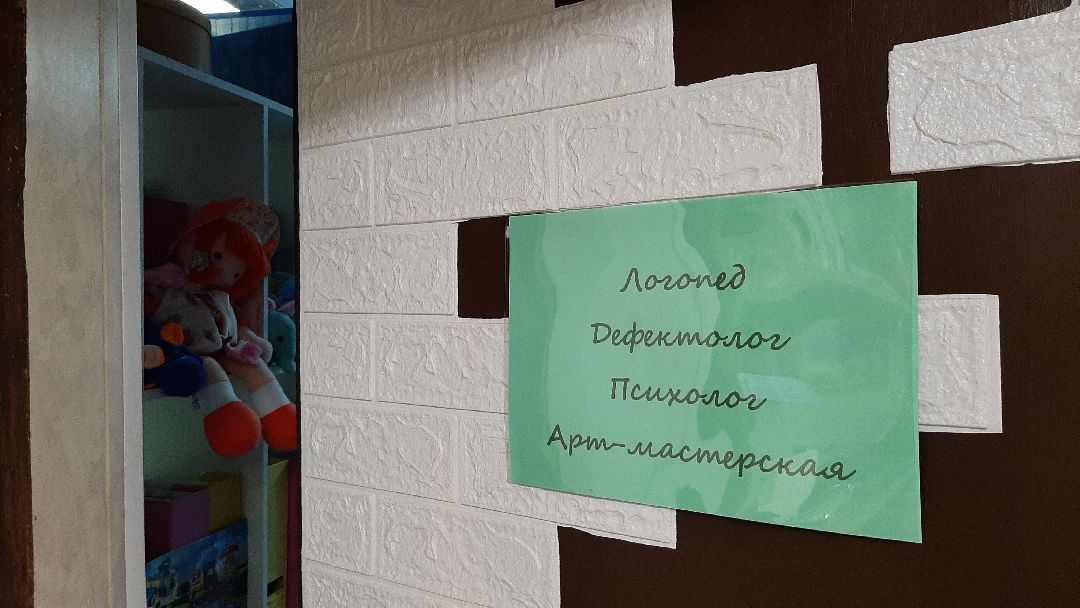 Логопед
Дефектолог
Психолог
Арт-мастерская